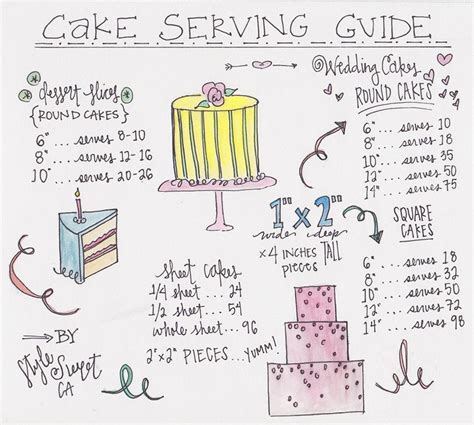 CAKE SERVING GUIDE
dessert slices
{ROUND CAKES}
6" ... serves 8-10
8" ... serves 12-16
10" ... serves 20-26
Wedding Cakes
ROUND CAKES
6" ... serves 10
8" ... serves 18
10" ... serves 35
12" ... serves 50
14" ... serves 75
1" x 2"
wide deep
x 4 INCHES TALL
PIECES
SQUARE
CAKES
6" ... serves 18
8" ... serves 32
10" ... serves 50
12" ... serves 72
14" ... serves 98
sheet cakes
1/4 sheet .... 24
1/2 sheet .... 54
whole sheet... 96
2"x2" PIECES...YUMM!
BY
Style Sweet
CA